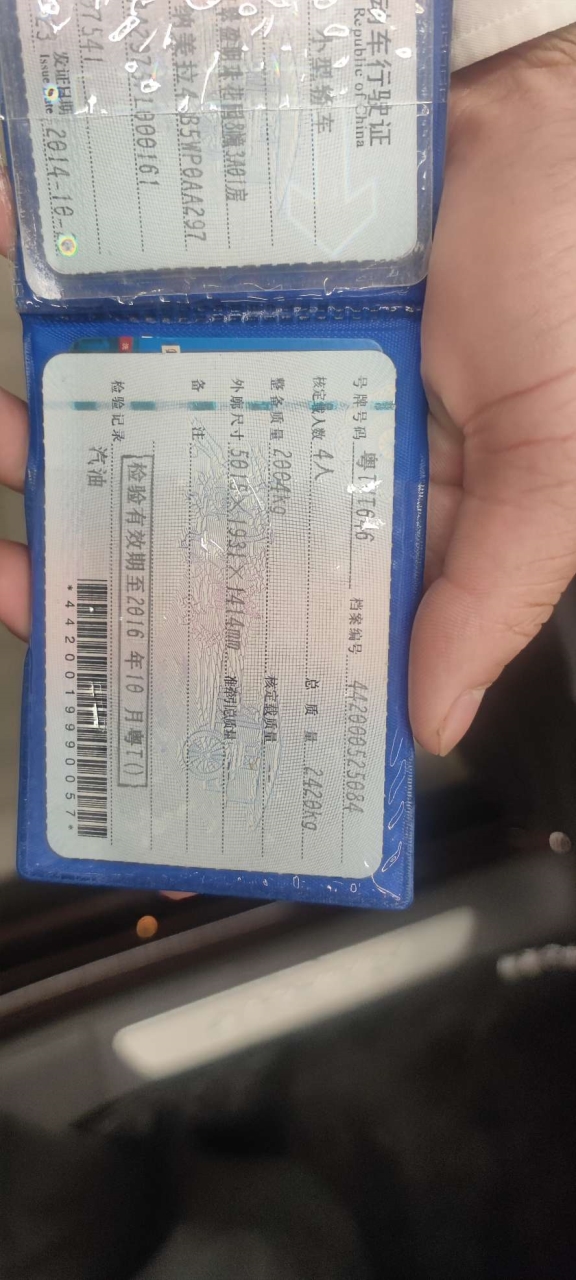 动车行驶证
Republic of China
小型轿车
花园8幢3A01房
B5WP0AA297
1000161
7541
发证日期 2014-10-
Issue Date
号牌号码 档案编号 442000525084
核定载人数 4人 总质量 2420kg
整备质量 2004kg 核定载质量
外廓尺寸 5019×1931×1414mm 准牵引总质量
备注
检验有效期至2016 年10 月粤T()
检验记录
汽油
*4420019990057*